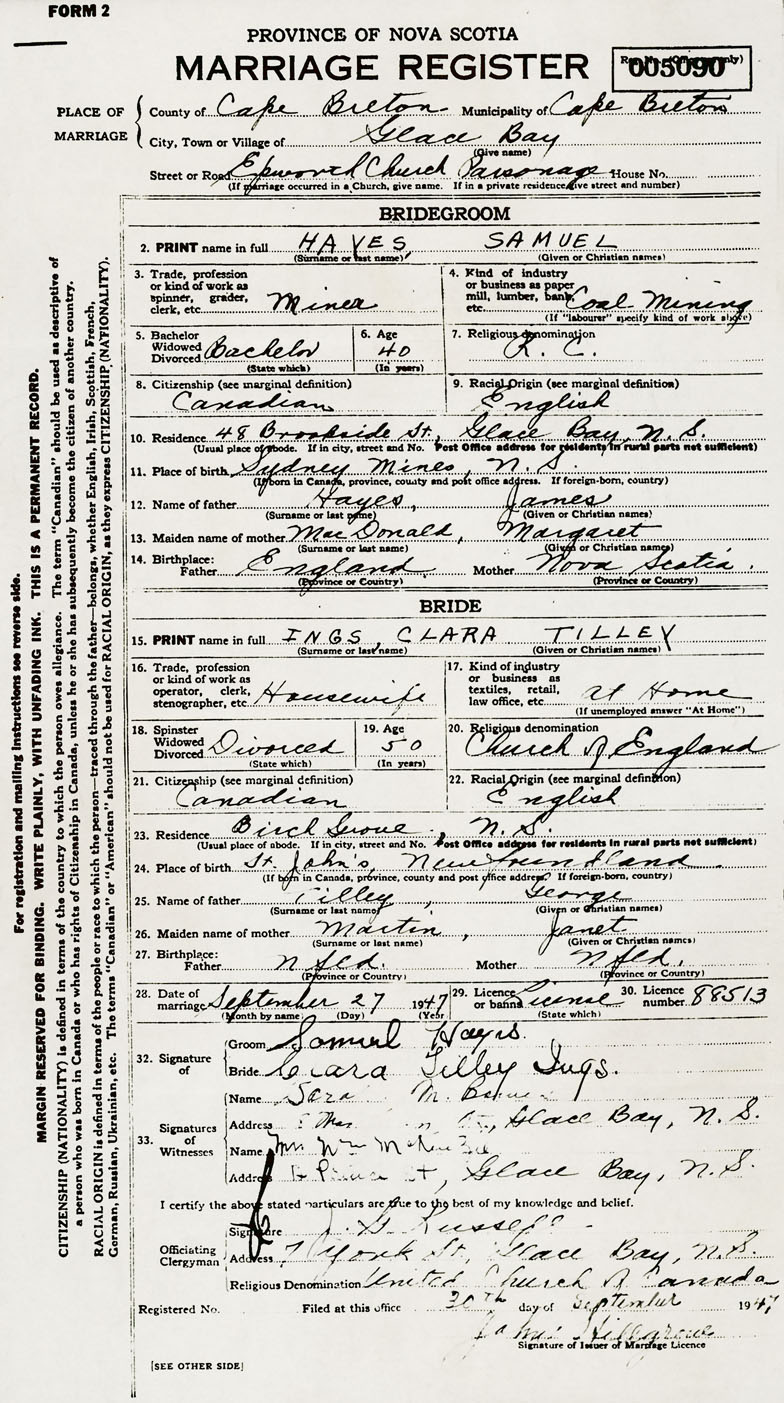 FORM 2
PROVINCE OF NOVA SCOTIA
MARRIAGE REGISTER
005090
PLACE OF MARRIAGE
County of Cape Breton Municipality of Cape Breton
City, Town or Village of Glace Bay
(Give name)
Street or Road Epworth Church Parsonage House No.
(If marriage occurred in a Church, give name. If in a private residence, give street and number)
BRIDEGROOM
2. PRINT name in full HAYES, SAMUEL
(Surname or last name) (Given or Christian names)
3. Trade, profession or kind of work as spinner, grader, clerk, etc. Miner
4. Kind of industry or business as paper mill, lumber, bank, etc. Coal Mining
(If "labourer" specify kind of work above)
5. Bachelor Widowed Divorced Bachelor
(State which)
6. Age 40
(In years)
7. Religious denomination R. C.
8. Citizenship (see marginal definition) Canadian
9. Racial Origin (see marginal definition) English
10. Residence 48 Brookside St., Glace Bay, N. S.
(Usual place of abode. If in city, street and No. Post Office address for residents in rural parts not sufficient)
11. Place of birth Sydney Mines, N. S.
(If born in Canada, province, county and post office address. If foreign-born, country)
12. Name of father Hayes, James
(Surname or last name) (Given or Christian names)
13. Maiden name of mother MacDonald, Margaret
(Surname or last name) (Given or Christian names)
14. Birthplace:
Father England Mother Nova Scotia.
(Province or Country) (Province or Country)
BRIDE
15. PRINT name in full INGS, CLARA TILLEY
(Surname or last name) (Given or Christian names)
16. Trade, profession or kind of work as operator, clerk, stenographer, etc. Housewife
17. Kind of industry or business as textiles, retail, law office, etc. at Home
(If unemployed answer "At Home")
18. Spinster Widowed Divorced Divorced
(State which)
19. Age 50
(In years)
20. Religious denomination Church of England
21. Citizenship (see marginal definition) Canadian
22. Racial Origin (see marginal definition) English
23. Residence Birch Grove, N. S.
(Usual place of abode. If in city, street and No. Post Office address for residents in rural parts not sufficient)
24. Place of birth St. John's, Newfoundland
(If born in Canada, province, county and post office address? If foreign-born, country)
25. Name of father Tilley, George
(Surname or last name) (Given or Christian names)
26. Maiden name of mother Martin, Janet
(Surname or last name) (Given or Christian names)
27. Birthplace:
Father Nfld. Mother Nfld.
(Province or Country) (Province or Country)
28. Date of marriage September 27 1947
(Month by name) (Day) (Year)
29. Licence or banns License
(State which)
30. Licence number 88513
32. Signature of
Groom Samuel Hayes.
Bride Clara Tilley Ings.
33. Signatures of Witnesses
Name Sara M.
Address St., Glace Bay, N. S.
Name Mrs Wm
Address Prince St, Glace Bay, N. S.
I certify the above stated particulars are true to the best of my knowledge and belief.
Officiating Clergyman
Signature J. G. Russell
Address 7 York St, Glace Bay, N. S.
Religious Denomination United Church of Canada
Registered No. Filed at this office 30th day of September 1947
James Hillgrove
Signature of Issuer of Marriage Licence
[SEE OTHER SIDE]
For registration and mailing instructions see reverse side.
MARGIN RESERVED FOR BINDING. WRITE PLAINLY, WITH UNFADING INK. THIS IS A PERMANENT RECORD.
CITIZENSHIP (NATIONALITY) is defined in terms of the country to which the person owes allegiance. The term "Canadian" should be used as descriptive of
a person who was born in Canada or who has rights of Citizenship in Canada, unless he or she has subsequently become the citizen of another country.
RACIAL ORIGIN is defined in terms of the people or race to which the person—traced through the father—belongs, whether English, Irish, Scottish, French,
German, Russian, Ukrainian, etc. The terms "Canadian" or "American" should not be used for RACIAL ORIGIN, as they express CITIZENSHIP (NATIONALITY).